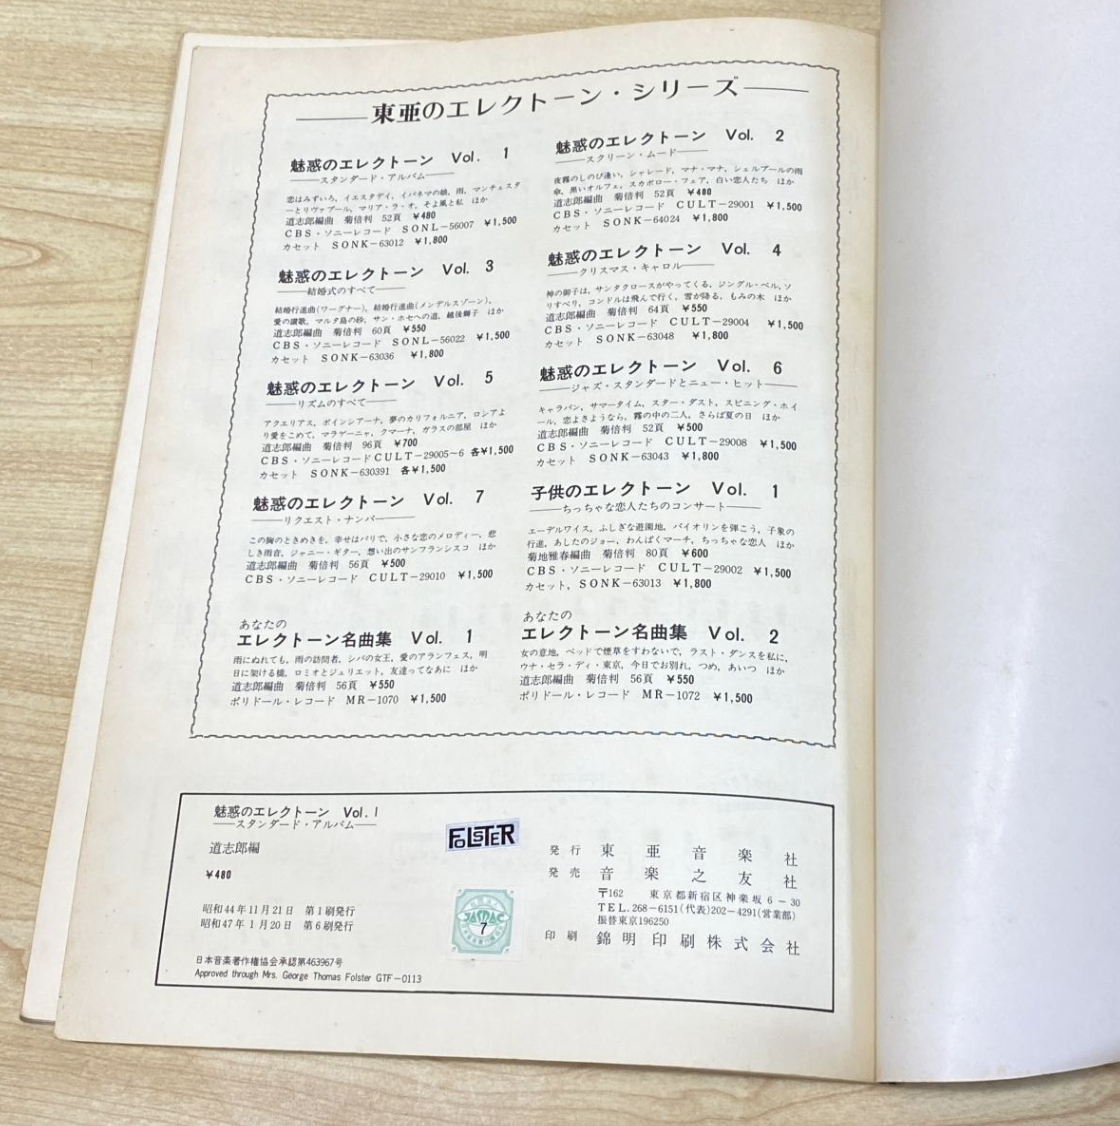 東亜のエレクトーン・シリーズ
魅惑のエレクトーン Vol. 1
スタンダード・アルバム
恋はみずいろ，イエスタデイ，イパネマの娘，雨，マンチェスタ
ーとリヴァプール，マリア・ラ・オ，そよ風と私 ほか
道志郎編曲 菊倍判 52頁 ¥480
CBS・ソニーレコード SONL−56007 ¥1,500
カセット SONK−63012 ¥1,800
魅惑のエレクトーン Vol. 3
結婚式のすべて
結婚行進曲(ワーグナー)，結婚行進曲(メンデルスゾーン)，
愛の讃歌，マルタ島の砂，サン・ホセへの道，越後獅子 ほか
道志郎編曲 菊倍判 60頁 ¥550
CBS・ソニーレコード SONL−56022 ¥1,500
カセット SONK−63036 ¥1,800
魅惑のエレクトーン Vol. 5
リズムのすべて
アクエリアス，ポインシアーナ，夢のカリフォルニア，ロシアよ
り愛をこめて，マラゲーニャ，クマーナ，ガラスの部屋 ほか
道志郎編曲 菊倍判 96頁 ¥700
CBS・ソニーレコードCULT−29005−6 各¥1,500
カセット SONK−630391 各¥1,500
魅惑のエレクトーン Vol. 7
リクエスト・ナンバー
この胸のときめきを，幸せはパリで，小さな恋のメロディー，悲
しき雨音，ジャニー・ギター，想い出のサンフランシスコ ほか
道志郎編曲 菊倍判 56頁 ¥500
CBS・ソニーレコード CULT−29010 ¥1,500
あなたの
エレクトーン名曲集 Vol. 1
雨にぬれても，雨の訪問者，シバの女王，愛のアランフェス，明
日に架ける橋，ロミオとジュリエット，友達ってなあに ほか
道志郎編曲 菊倍判 56頁 ¥550
ポリドール・レコード MR−1070 ¥1,500
魅惑のエレクトーン Vol. 2
スクリーン・ムード
夜霧のしのび逢い，シャレード，マナ・マナ，シェルブールの雨
傘，黒いオルフェ，スカボロー・フェア，白い恋人たち ほか
道志郎編曲 菊倍判 52頁 ¥480
CBS・ソニーレコード CULT−29001 ¥1,500
カセット SONK−64024 ¥1,800
魅惑のエレクトーン Vol. 4
クリスマス・キャロル
神の御子は，サンタクロースがやってくる，ジングル・ベル，ソ
リすべり，コンドルは飛んで行く，雪が降る，もみの木 ほか
道志郎編曲 菊倍判 64頁 ¥550
CBS・ソニーレコード CULT−29004 ¥1,500
カセット SONK−63048 ¥1,800
魅惑のエレクトーン Vol. 6
ジャズ・スタンダードとニュー・ヒット
キャラバン，サマータイム，スター・ダスト，スピニング・ホイ
ール，恋よさようなら，霧の中の二人，さらば夏の日 ほか
道志郎編曲 菊倍判 52頁 ¥500
CBS・ソニーレコード CULT−29008 ¥1,500
カセット SONK−63043 ¥1,800
子供のエレクトーン Vol. 1
ちっちゃな恋人たちのコンサート
エーデルワイス，ふしぎな遊園地，バイオリンを弾こう，子象の
行進，あしたのジョー，わんぱくマーチ，ちっちゃな恋人 ほか
菊地雅春編曲 菊倍判 80頁 ¥600
CBS・ソニーレコード CULT−29002 ¥1,500
カセット，SONK−63013 ¥1,800
あなたの
エレクトーン名曲集 Vol. 2
女の意地，ベッドで煙草をすわないで，ラスト・ダンスを私に，
ウナ・セラ・ディ・東京，今日でお別れ，つめ，あいつ ほか
道志郎編曲 菊倍判 56頁 ¥550
ポリドール・レコード MR−1072 ¥1,500
魅惑のエレクトーン Vol. 1
スタンダード・アルバム
道志郎編
¥480
昭和44年11月21日 第1刷発行
昭和47年1月20日 第6刷発行
日本音楽著作権協会承認第463967号
Approved through Mrs. George Thomas Folster GTF−0113
FOLSTER
JASRAC
7
発行 東亜音楽社
発売 音楽之友社
〒162 東京都新宿区神楽坂6−30
TEL.268−6151(代表)202−4291(営業部)
振替東京196250
印刷 錦明印刷株式会社